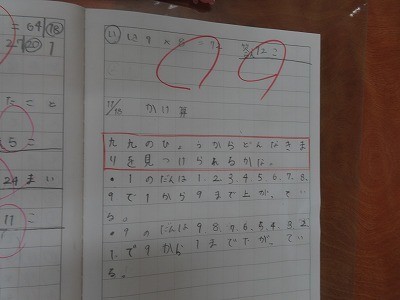 = 64 ⑱
27 ⑳ 1
たこと
らこ
24 まい
11 こ
(い) しき 9 × 8 = 72 答え 72こ
かけ算
九九のひょうからどんなきま
りを見つけられるかな。
・1のだんは1.2.3.4.5.6.7.8.
9で1から9まで上がってい
る。
・9のだんは9.8.7.6.5.4.3.2
1.で9から1まで下がってい
る。